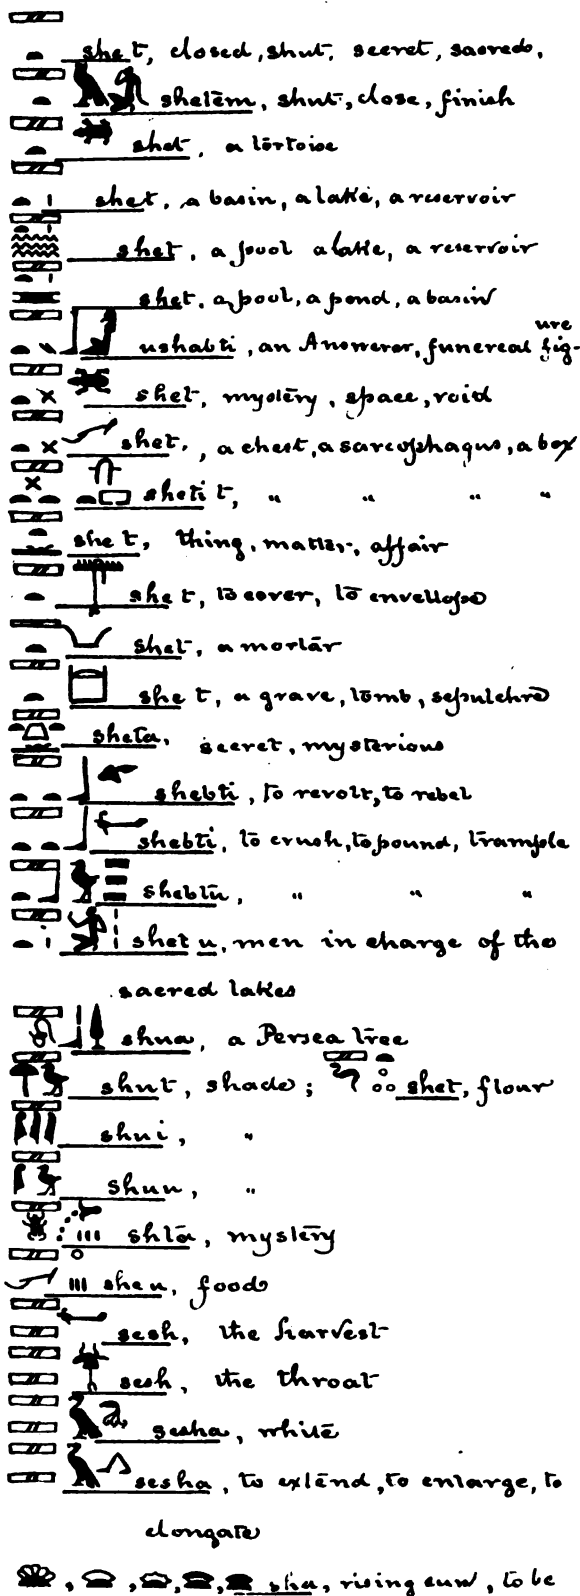 she t, closed, shut, secret, sacred,
shetem, shut, close, finish
shet, a tortoise
shet, a basin, a lake, a reservoir
shet, a pool a lake, a reservoir
shet, a pool, a pond, a basin
ure
ushabti, an Answerer, funereal fig-
shet, mystery, space, void
shet, , a chest, a sarcophagus, a box
sheti t, " " " "
she t, thing, matter, affair
she t, to cover, to envellope
shet, a mortar
she t, a grave, tomb, sepulchre
sheta, secret, mysterious
shebti, to revolt, to rebel
shebti, to crush, to pound, trample
shebtu, " " "
shet u, men in charge of the
sacred lakes
shua, a Persea tree
shut, shade; shet, flour
shui, "
shuu, "
shta, mystery
sheu, food
sesh, the harvest
sesh, the throat
sesha, white
sesha, to extend, to enlarge, to
elongate
, , , , sha, rising sun, to be